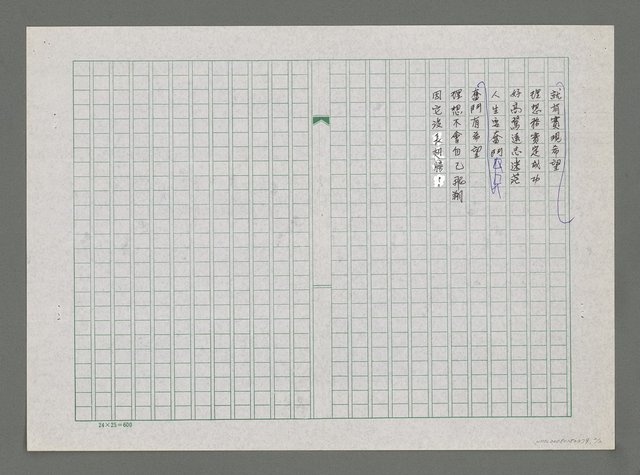 就前實現希望
理想務實定成功
好高騖遠忘迷茫
人生要奮鬥
奮鬥有希望
理想不會自己飛翔
因它沒長翅膀！
24×25=600